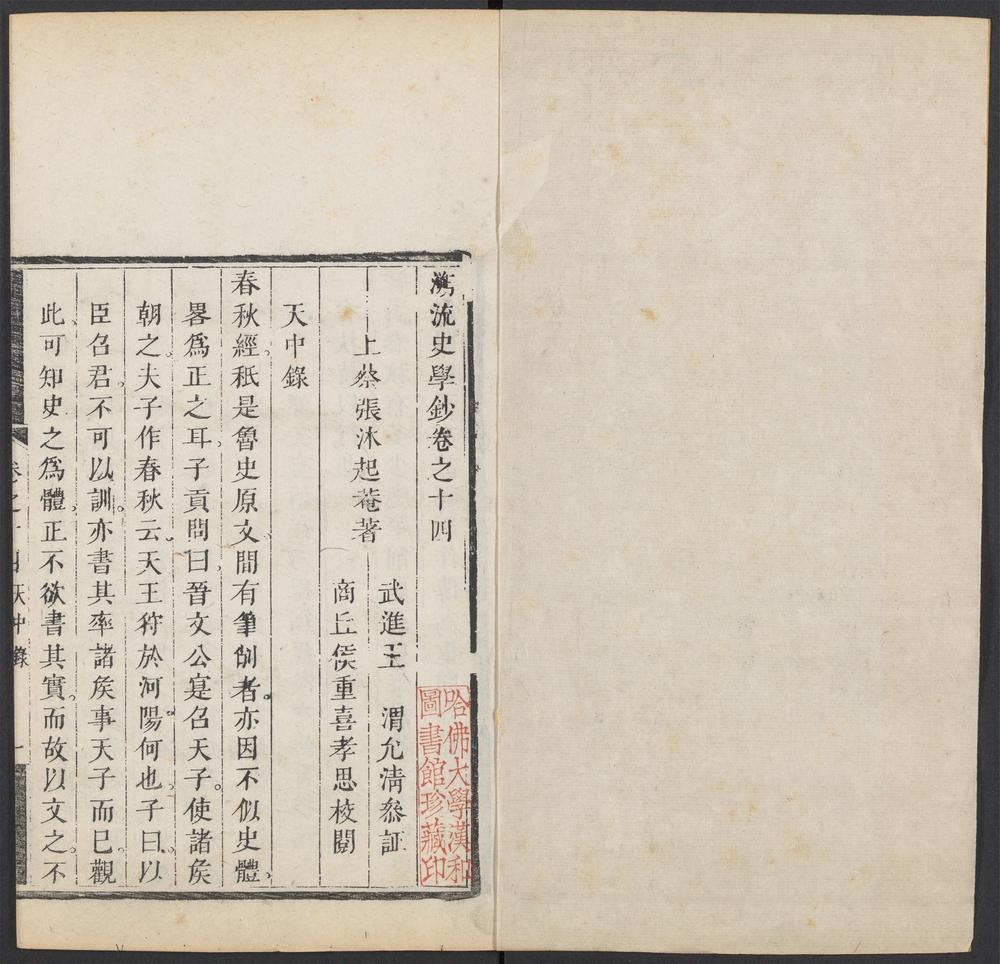 溯流史學鈔卷之十四
上蔡張沐起菴著
武進王　渭允淸叅証
商丘侯重喜孝思校閱
天中錄
春秋經。秖是魯史原文間有筆削者。亦因不似史體。
畧爲正之耳。子貢問曰。晉文公寔召天子。使諸矦
朝之。夫子作春秋云。天王狩於河陽。何也。子曰。以
臣召君。不可以訓。亦書其率諸矦事天子而已。觀
此。可知史之爲體。正不欲書其實。而故以文之。不
卷之十四　天中錄　一
哈佛大學漢和
圖書館珍藏印